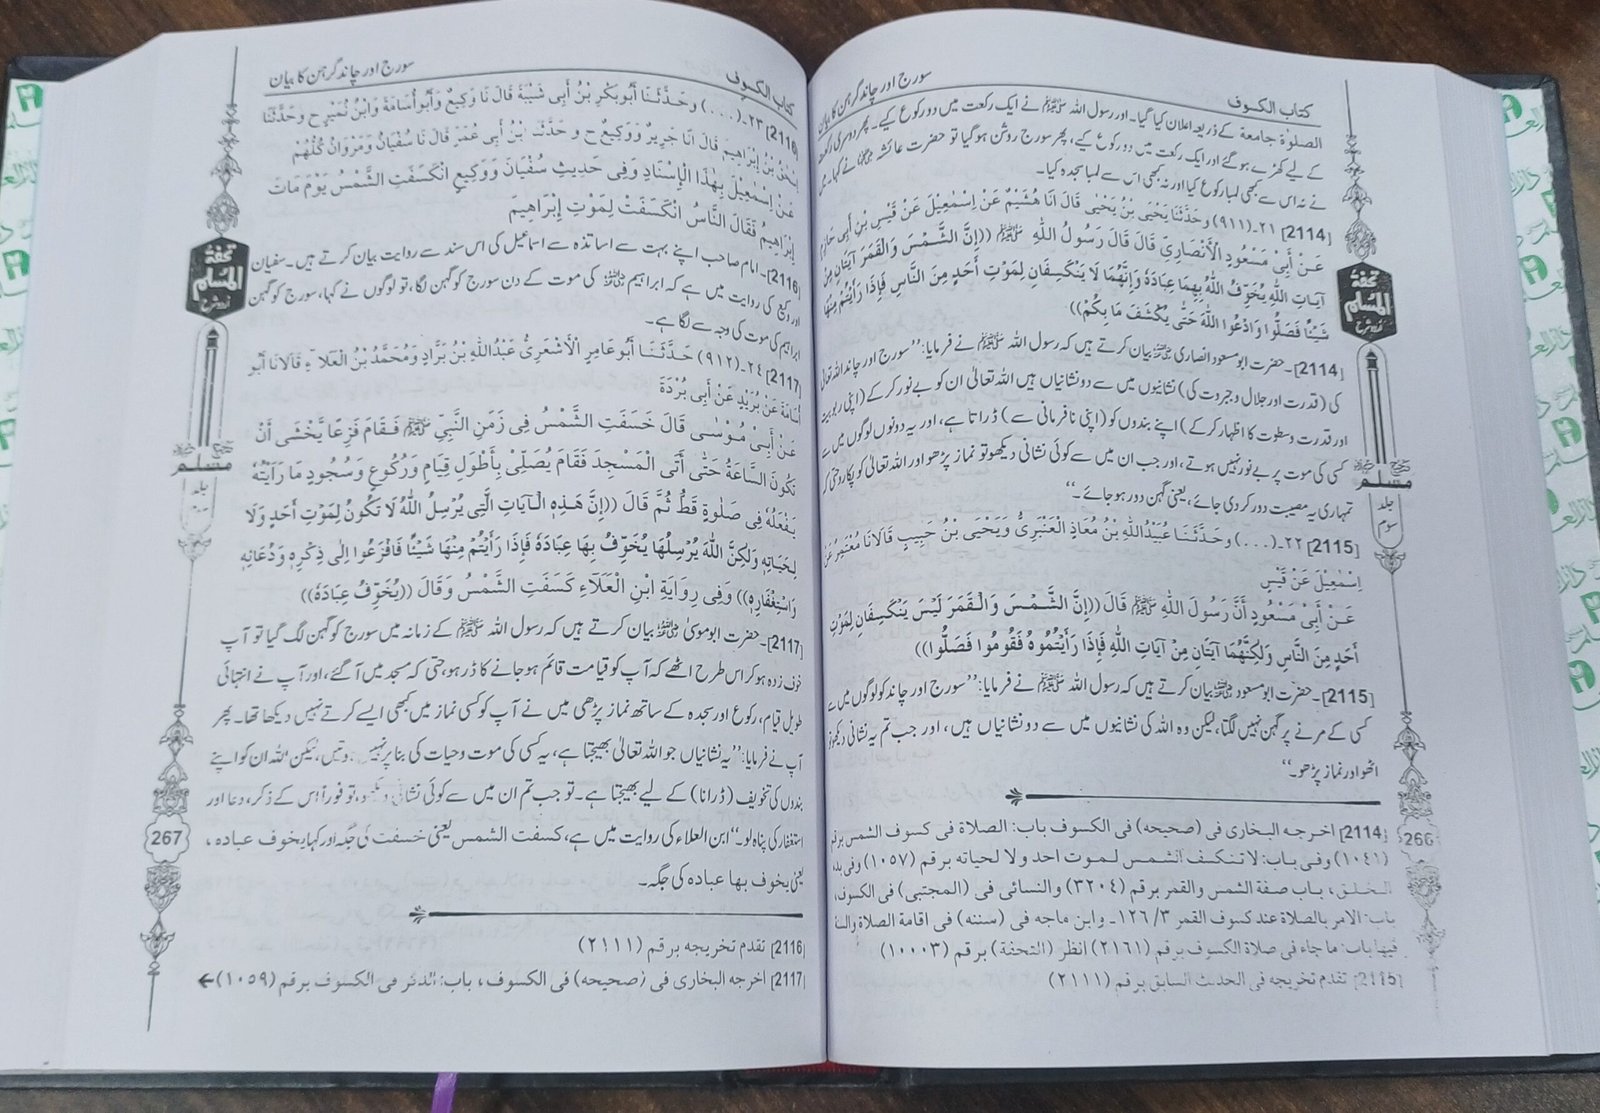 کتاب الکسوف
سورج اور چاند گرہن کا بیان
الصلوٰة جامعة کے ذریعہ اعلان کیا گیا۔ اور رسول اللہ ﷺ نے ایک رکعت میں دو رکوع کیے۔ پھر دوسری رکعت
کے لیے کھڑے ہو گئے اور ایک رکعت میں دو رکوع کیے، پھر سورج روشن ہو گیا تو حضرت عائشہ نے کہا۔ میں
نے نہ اس سے کبھی لمبا رکوع کیا اور نہ کبھی اس سے لمبا سجدہ کیا۔
[2114] ٢١-(٩١١) وحَدَّثَنَا يَحْيَى بْنُ يَحْيَى قَالَ أنَا هُشَيْمٌ عَنْ إِسْمٰعِيْلَ عَنْ قَيْسِ بْنِ أَبِي حَازِمٍ
عَنْ أَبِي مَسْعُودٍ الْأَنْصَارِيِّ قَالَ قَالَ رَسُولُ اللهِ ﷺ ((إِنَّ الشَّمْسَ وَالْقَمَرَ آيَتَانِ مِنْ
آيَاتِ اللهِ يُخَوِّفُ اللهُ بِهِمَا عِبَادَهُ وَإِنَّهُمَا لَا يَنْكَسِفَانِ لِمَوْتِ أَحَدٍ مِنَ النَّاسِ فَإِذَا رَأَيْتُمْ مِنْهَا
شَيْئًا فَصَلُّوا وَادْعُوا اللهَ حَتّٰى يُكْشَفَ مَا بِكُمْ))
[2114]۔ حضرت ابو مسعود انصاری بیان کرتے ہیں کہ رسول اللہ ﷺ نے فرمایا: ’’سورج اور چاند اللہ تعالیٰ
کی (قدرت اور جلال و جبروت کی) نشانیوں میں سے دو نشانیاں ہیں اللہ تعالیٰ ان کو بے نور کر کے (اپنی ربوبیت
اور قدرت و سطوت کا اظہار کر کے) اپنے بندوں کو (اپنی نافرمانی سے) ڈراتا ہے، اور یہ دونوں لوگوں میں سے
کسی کی موت پر بے نور نہیں ہوتے، اور جب ان میں سے کوئی نشانی دیکھو تو نماز پڑھو اور اللہ تعالیٰ کو پکارو حتی کہ
تمہاری یہ مصیبت دور کر دی جائے، یعنی گہن دور ہو جائے۔‘‘
[2115] ٢٢-(...) وحَدَّثَنَا عُبَيْدُاللهِ بْنُ مُعَاذٍ الْعَنْبَرِيُّ وَيَحْيَى بْنُ حَبِيبٍ قَالَا نَا مُعْتَمِرٌ عَنْ
إِسْمٰعِيْلَ عَنْ قَيْسٍ
عَنْ أَبِيْ مَسْعُودٍ أَنَّ رَسُولَ اللهِ ﷺ قَالَ ((إِنَّ الشَّمْسَ وَالْقَمَرَ لَيْسَ يَنْكَسِفَانِ لِمَوْتِ
أَحَدٍ مِنَ النَّاسِ وَلٰكِنَّهُمَا آيَتَانِ مِنْ آيَاتِ اللهِ فَإِذَا رَأَيْتُمُوهُ فَقُومُوا فَصَلُّوا))
[2115]۔ حضرت ابو مسعود بیان کرتے ہیں کہ رسول اللہ ﷺ نے فرمایا: ’’سورج اور چاند کو لوگوں میں سے
کسی کے مرنے پر گہن نہیں لگتا، لیکن وہ اللہ کی نشانیوں میں سے دو نشانیاں ہیں، اور جب تم یہ نشانی دیکھو تو
اٹھو اور نماز پڑھو۔‘‘
[2114] اخرجه البخاری فی (صحيحه) فی الكسوف باب: الصلاة فی كسوف الشمس برقم
(١٠٤١) وفی باب: لا تنكسف الشمس لموت احد ولا لحياته برقم (١٠٥٧) وفی بدء
الخلق، باب صفة الشمس والقمر برقم (٣٢٠٤) والنسائی فی (المجتبی) فی الكسوف،
باب: الامر بالصلاة عند كسوف القمر ٣/ ١٢٦۔ وابن ماجه فی (سننه) فی اقامة الصلاة والسنة
فيها باب: ما جاء فی صلاة الكسوف برقم (٢١٦١) انظر (التحفة) برقم (١٠٠٠٣)
[2115] تقدم تخريجه فی الحديث السابق برقم (٢١١١)
تحفة
المسلم
اردو شرح
صحیح
مسلم
جلد
سوم
266
کتاب الکسوف
سورج اور چاند گرہن کا بیان
[2116] ٢٣-(...) وحَدَّثَنَا أَبُوبَكْرِ بْنُ أَبِي شَيْبَةَ قَالَ نَا وَكِيْعٌ وَأَبُو أُسَامَةَ وَابْنُ نُمَيْرٍ ح وَحَدَّثَنَا
إِسْحٰقُ بْنُ إِبْرَاهِيمَ قَالَ انَا جَرِيرٌ وَوَكِيعٌ ح و حَدَّثَنَا ابْنُ أَبِي عُمَرَ قَالَ نَا سُفْيَانُ وَمَرْوَانُ كُلُّهُمْ
عَنْ إِسْمٰعِيْلَ بِهٰذَا الْإِسْنَادِ وَفِي حَدِيثِ سُفْيَانَ وَوَكِيعٍ انْكَسَفَتِ الشَّمْسُ يَوْمَ مَاتَ
إِبْرَاهِيمُ فَقَالَ النَّاسُ انْكَسَفَتْ لِمَوْتِ إِبْرَاهِيمَ
[2116]۔ امام صاحب اپنے بہت سے اساتذہ سے اسماعیل کی اس سند سے روایت بیان کرتے ہیں۔ سفیان
اور وکیع کی روایت میں ہے کہ ابراہیم کی موت کے دن سورج کو گہن لگا، تو لوگوں نے کہا، سورج کو گہن
ابراہیم کی موت کی وجہ سے لگا ہے۔
[2117] ٢٤-(٩١٢) حَدَّثَنَا أَبُو عَامِرٍ الْأَشْعَرِيُّ عَبْدُاللهِ بْنُ بَرَّادٍ وَمُحَمَّدُ بْنُ الْعَلَاءِ قَالَا نَا أَبُو
أُسَامَةَ عَنْ بُرَيْدٍ عَنْ أَبِي بُرْدَةَ
عَنْ أَبِيْ مُوْسٰى قَالَ خَسَفَتِ الشَّمْسُ فِي زَمَنِ النَّبِيِّ ﷺ فَقَامَ فَزِعًا يَّخْشٰى أَنْ
تَكُونَ السَّاعَةُ حَتّٰى أَتَى الْمَسْجِدَ فَقَامَ يُصَلِّيْ بِأَطْوَلِ قِيَامٍ وَرُكُوعٍ وَسُجُودٍ مَا رَأَيْتُهُ
يَفْعَلُهُ فِي صَلٰوةٍ قَطُّ ثُمَّ قَالَ ((إِنَّ هٰذِهِ الْآيَاتِ الَّتِي يُرْسِلُ اللهُ لَا تَكُونُ لِمَوْتِ أَحَدٍ وَلَا
لِحَيَاتِهِ وَلٰكِنَّ اللهَ يُرْسِلُهَا يُخَوِّفُ بِهَا عِبَادَهُ فَإِذَا رَأَيْتُمْ مِنْهَا شَيْئًا فَافْزَعُوا إِلٰى ذِكْرِهِ وَدُعَائِهِ
وَاسْتِغْفَارِهِ)) وَفِي رِوَايَةِ ابْنِ الْعَلَآءِ كَسَفَتِ الشَّمْسُ وَقَالَ ((يُخَوِّفُ عِبَادَهُ))
[2117]۔ حضرت ابو موسیٰ بیان کرتے ہیں کہ رسول اللہ ﷺ کے زمانہ میں سورج کو گہن لگ گیا تو آپ
خوف زدہ ہو کر اس طرح اٹھے کہ آپ کو قیامت قائم ہو جانے کا ڈر ہو، حتی کہ مسجد میں آ گئے، اور آپ نے انتہائی
طویل قیام، رکوع اور سجدہ کے ساتھ نماز پڑھی میں نے آپ کو کسی نماز میں کبھی ایسے کرتے نہیں دیکھا تھا۔ پھر
آپ نے فرمایا: ’’یہ نشانیاں جو اللہ تعالیٰ بھیجتا ہے، یہ کسی کی موت و حیات کی بنا پر نہیں ہوتیں، لیکن اللہ ان کو اپنے
بندوں کی تخویف (ڈرانا) کے لیے بھیجتا ہے۔ تو جب تم ان میں سے کوئی نشانی دیکھو، تو فوراً اس کے ذکر، دعا اور
استغفار کی پناہ لو۔‘‘ ابن العلاء کی روایت میں ہے، کسفت الشمس یعنی خسفت کی جگہ اور کہا یخوف عبادہ،
یعنی یخوف بها عبادہ کی جگہ۔
[2116] تقدم تخريجه برقم (٢١١١)
[2117] اخرجه البخاری فی (صحيحه) فی الكسوف، باب: الذكر فی الكسوف برقم (١٠٥٩)←
تحفة
المسلم
اردو شرح
صحیح
مسلم
جلد
سوم
267